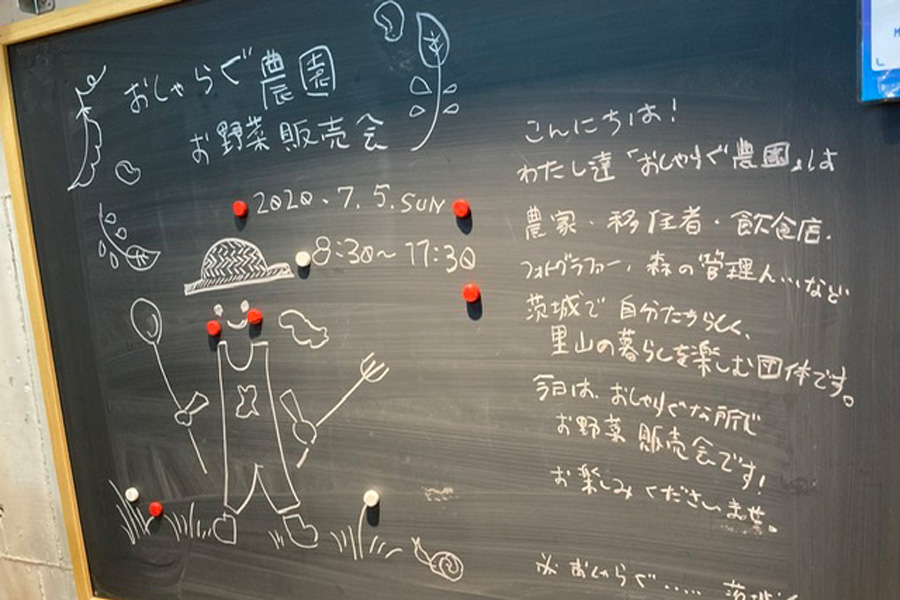 おしゃらぐ農園
お野菜販売会
2020.7.5.SUN
8:30~17:30
こんにちは!
わたし達「おしゃらぐ農園」は
農家・移住者・飲食店・
フォトグラファー、森の管理人…など
茨城で自分たちらしく、
里山の暮らしを楽しむ団体です。
今日は、おしゃらぐな所で
お野菜販売会です!
お楽しみくださいませ。
※おしゃらぐ…..茨城